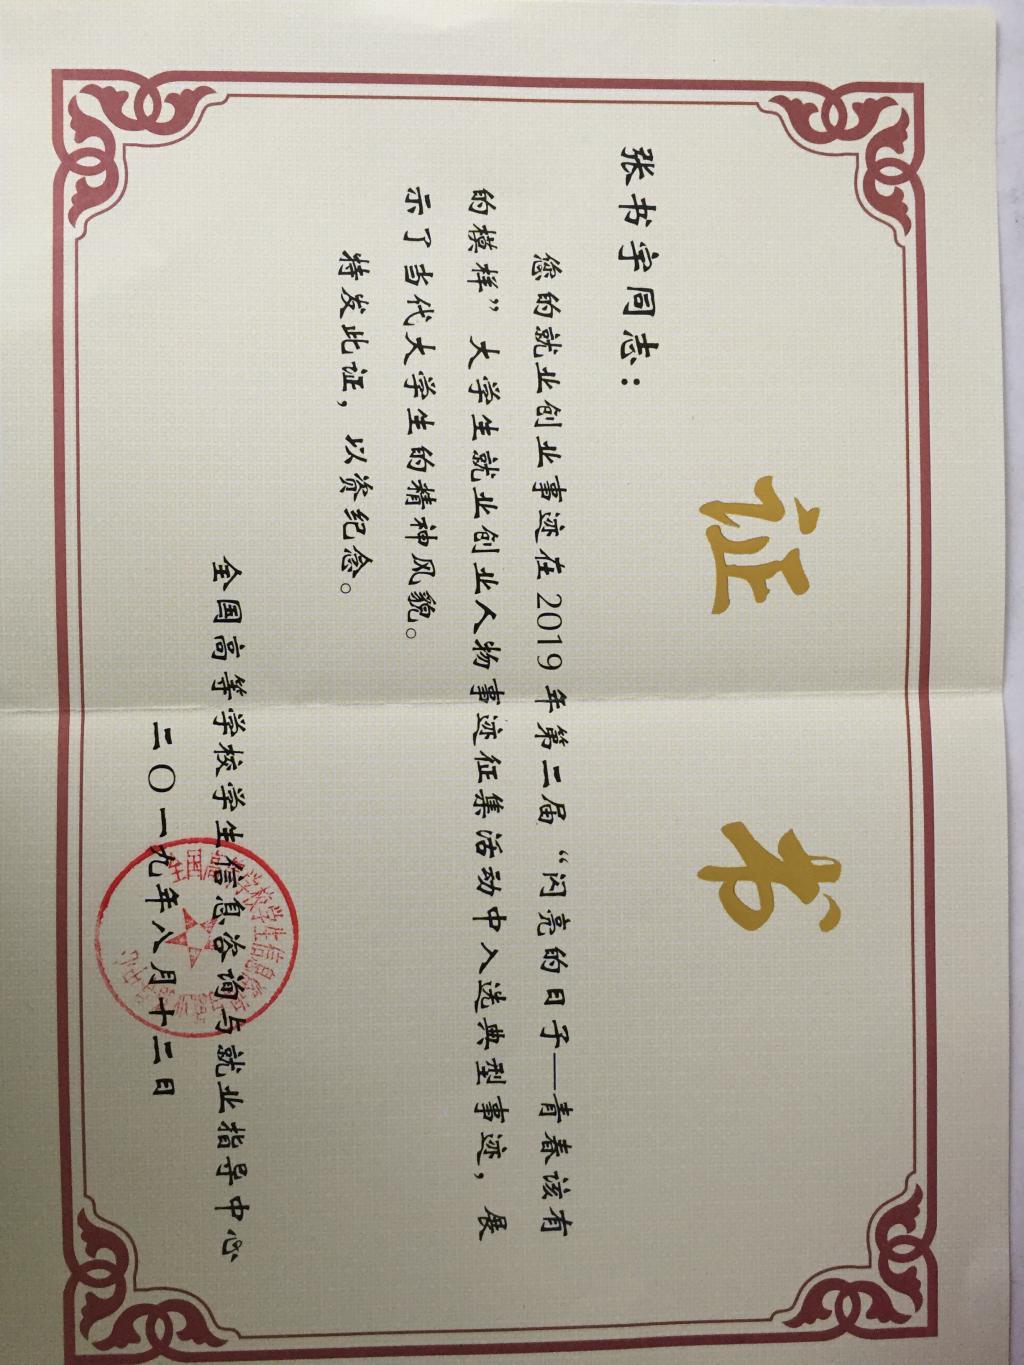 证书
张书宇同志：
您的就业创业事迹在2019年第二届“闪亮的日子—青春该有
的模样”大学生就业创业人物事迹征集活动中入选典型事迹，展
示了当代大学生的精神风貌。
特发此证，以资纪念。
全国高等学校学生信息咨询与就业指导中心
二〇一九年八月十二日
全国高等学校学生信息咨询与就业指导中心